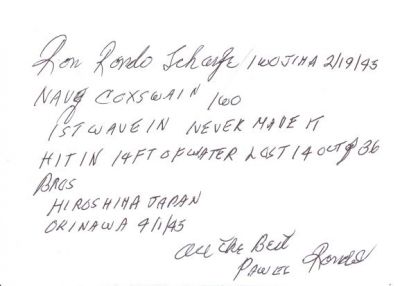 Ron Rondo Scharfe IWO JIMA 2/19/45
NAVY COXSWAIN IWO
1ST WAVE IN NEVER MADE IT
HIT IN 14 FT OF WATER LOST 14 OUT of 36
BROS
HIROSHIMA JAPAN
OKINAWA 4/1/45
All The Best
Rondo